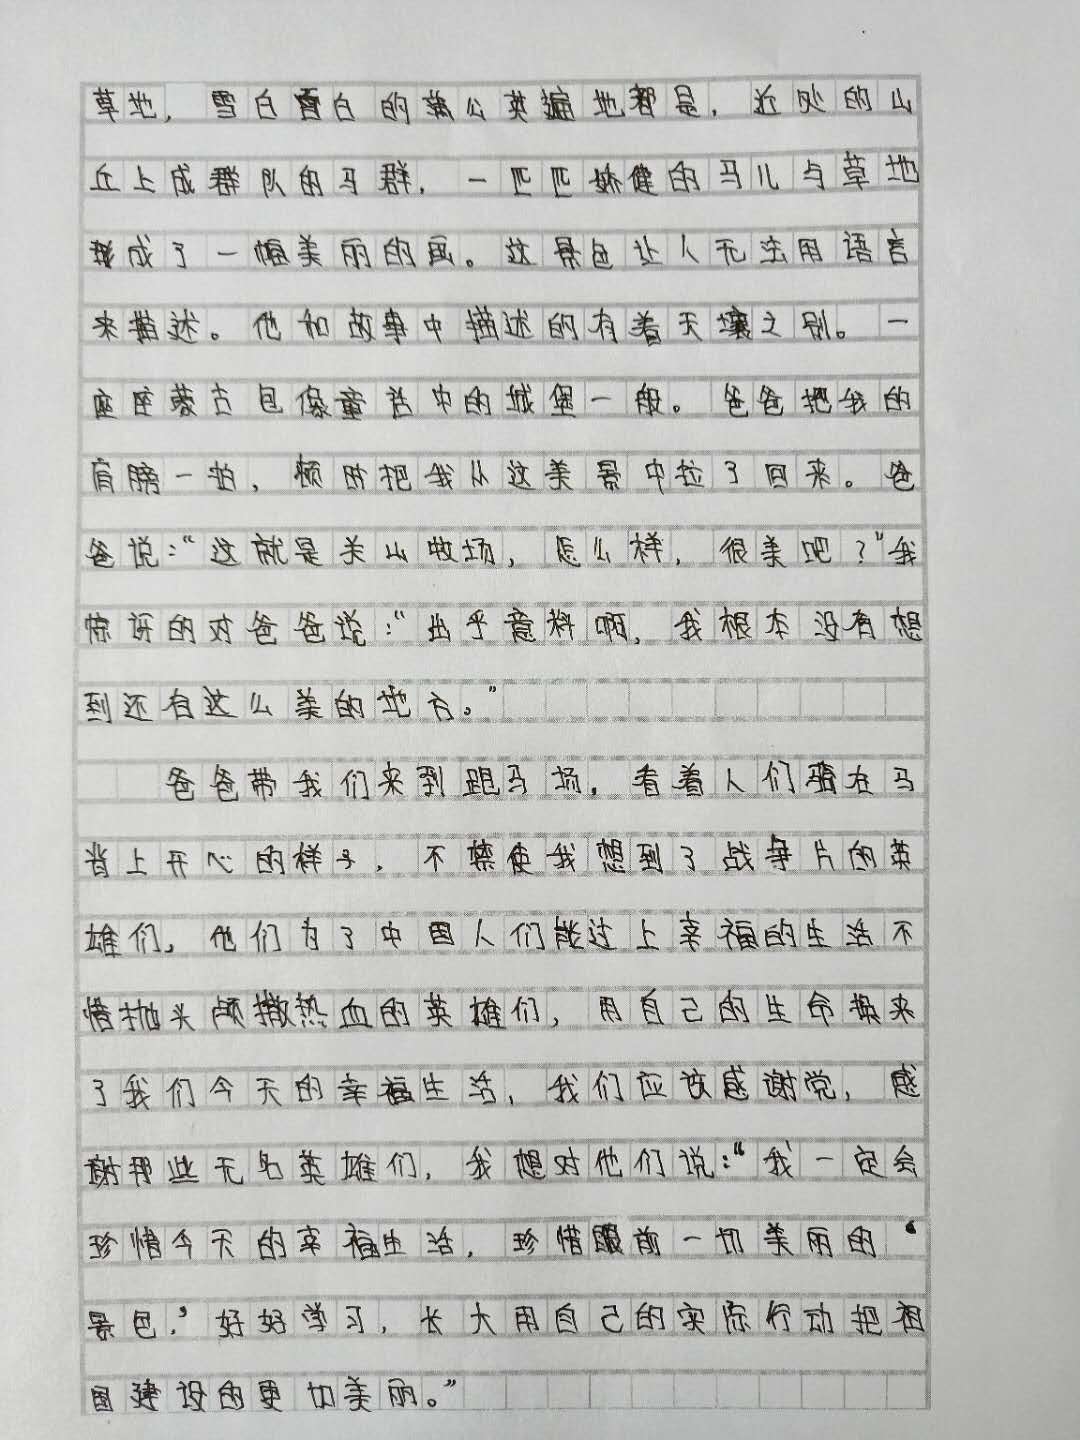 草地，雪白雪白的蒲公英遍地都是，近处的山
丘上成群队的马群，一匹匹娇健的马儿与草地
形成了一幅美丽的画。这景色让人无法用语言
来描述。他和故事中描述的有着天壤之别。一
座座蒙古包像童话中的城堡一般。爸爸把我的
肩膀一拍，顿时把我从这美景中拉了回来。爸
爸说：“这就是关山牧场，怎么样，很美吧？”我
惊讶的对爸爸说：“出乎意料啊，我根本没有想
到还有这么美的地方。”
爸爸带我们来到跑马场，看着人们骑在马
背上开心的样子，不禁使我想到了战争片的英
雄们，他们为了中国人们能过上幸福的生活不
惜抛头颅撒热血的英雄们，用自己的生命换来
了我们今天的幸福生活，我们应该感谢党，感
谢那些无名英雄们，我想对他们说：“我一定会
珍惜今天的幸福生活，珍惜眼前一切美丽的‘
景色，’好好学习，长大用自己的实际行动把祖
国建设的更加美丽。”